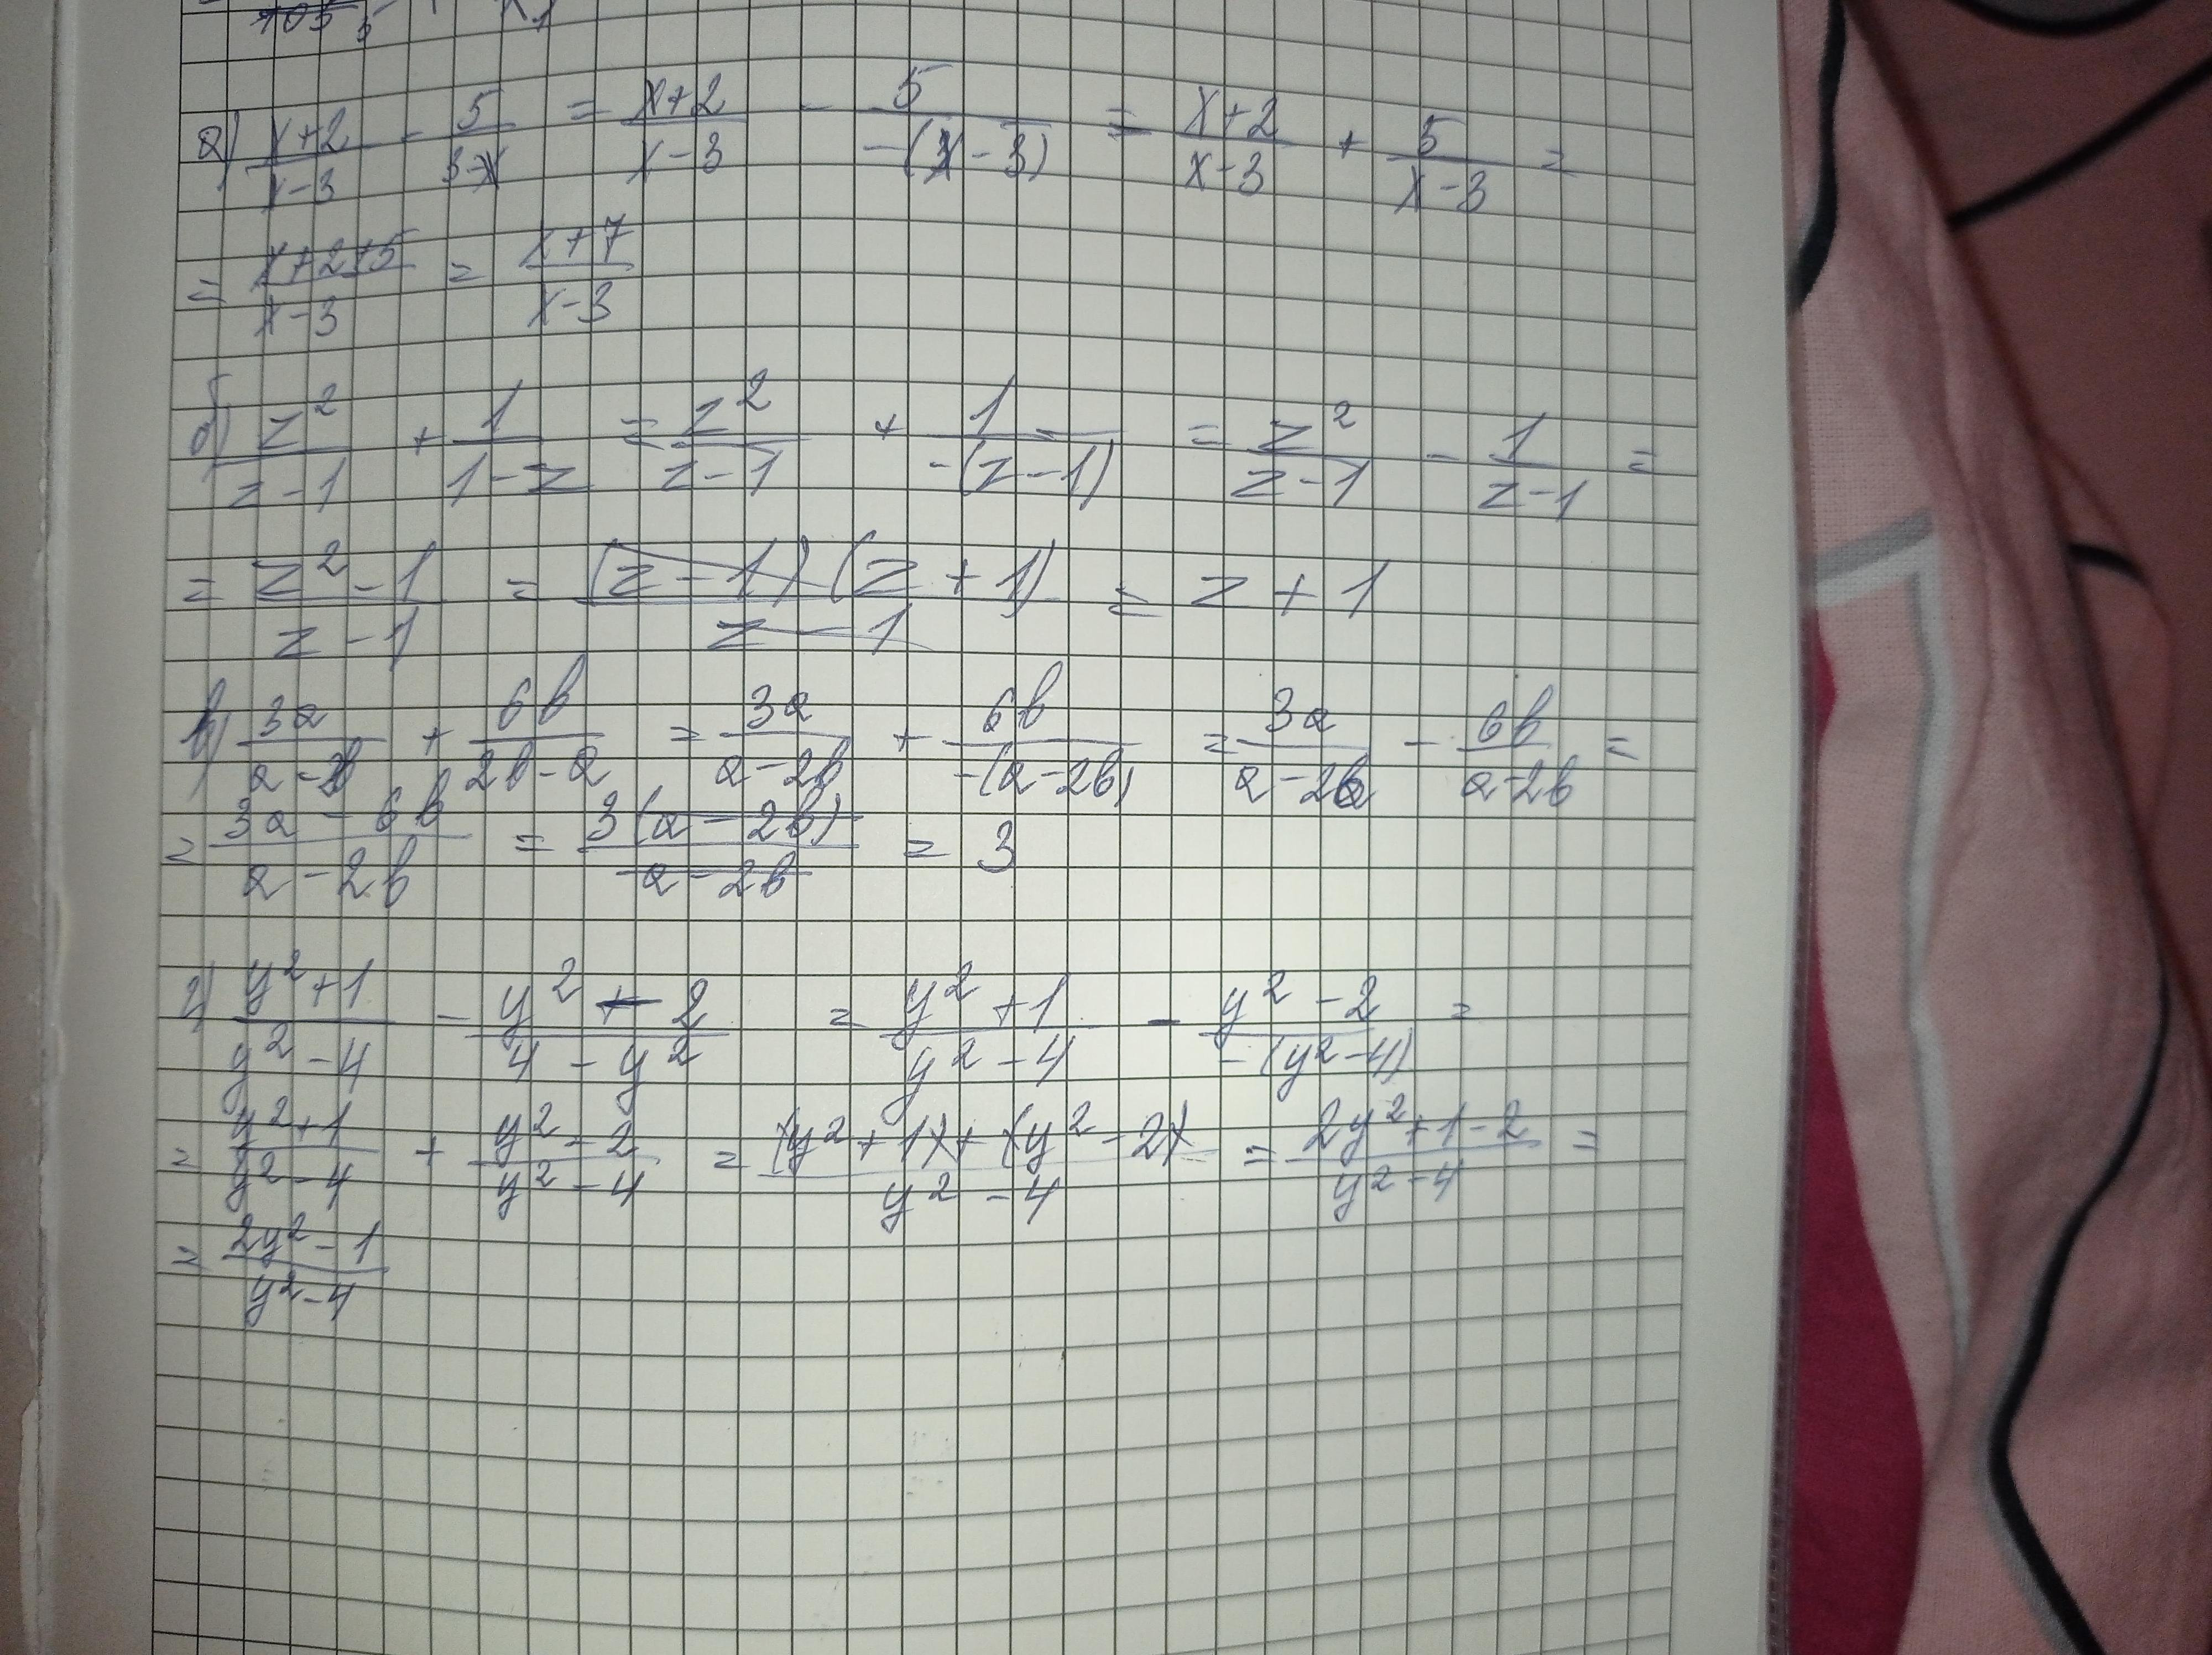 а) (x+2)/(x-3) - 5/(3-x) = (x+2)/(x-3) - 5/(-(x-3)) = (x+2)/(x-3) + 5/(x-3) =
= (x+2+5)/(x-3) = (x+7)/(x-3)
б) z²/(z-1) + 1/(1-z) = z²/(z-1) + 1/(-(z-1)) = z²/(z-1) - 1/(z-1) =
= (z²-1)/(z-1) = (z-1)(z+1)/(z-1) = z+1
в) 3a/(a-2b) + 6b/(2b-a) = 3a/(a-2b) + 6b/(-(a-2b)) = 3a/(a-2b) - 6b/(a-2b) =
= (3a-6b)/(a-2b) = 3(a-2b)/(a-2b) = 3
г) (y²+1)/(y²-4) - (y²-2)/(4-y²) = (y²+1)/(y²-4) - (y²-2)/(-(y²-4)) =
= (y²+1)/(y²-4) + (y²-2)/(y²-4) = ((y²+1)+(y²-2))/(y²-4) = (2y²+1-2)/(y²-4) =
= (2y²-1)/(y²-4)